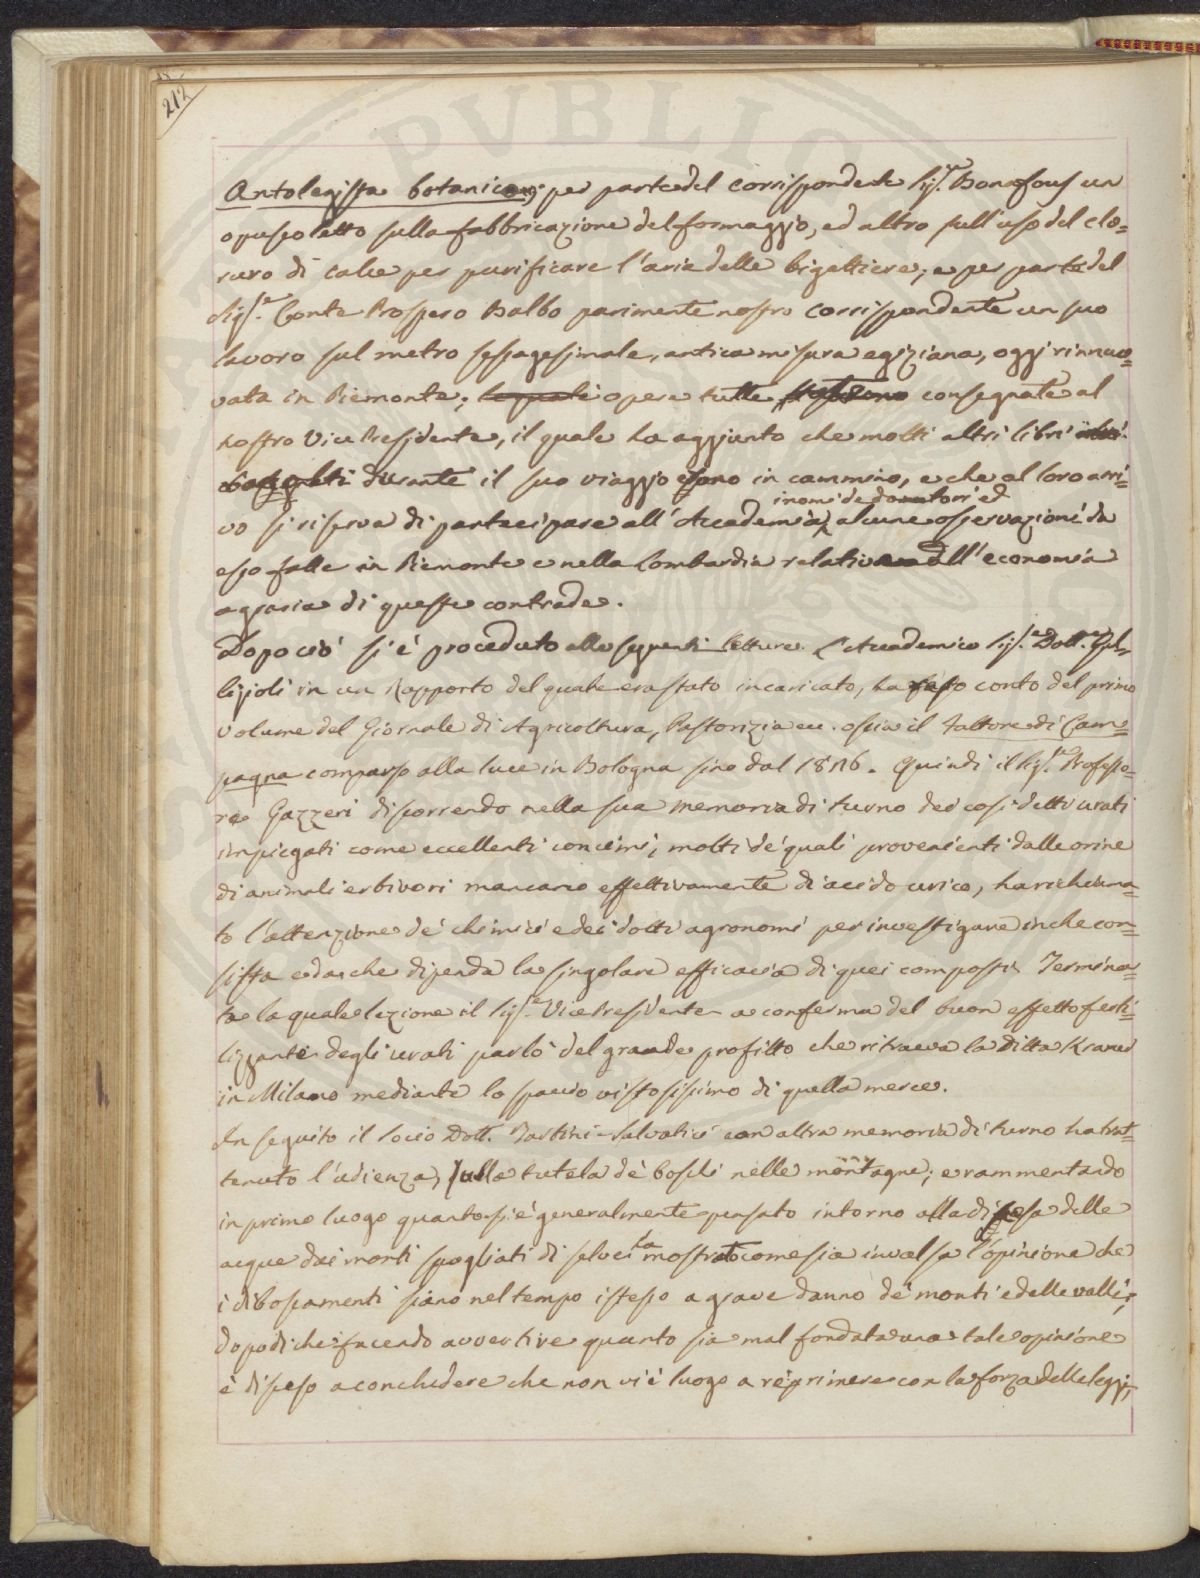 212
Antolegista botanico; per parte del corrispondente Sig.re Bonafous un
opuscoletto sulla fabbricazione del formaggio, ed altro sull'uso del clo=
ruro di calce per purificare l'aria delle bigattiere; e per parte del
Sig.re Conte Prospero Balbo parimente nostro corrispondente un suo
lavoro sul metro sessagesimale, antica misura egiziana, oggi rinnuo=
vata in Piemonte; le quali opere tutte consegnate al
nostro Vice Presidente, il quale ha aggiunto che molti altri libri
durante il suo viaggio sono in cammino, e che al loro arri=
vo si riserva di partecipare all'Accademia i nomi de donatori ed alcune osservazioni da
esso fatte in Piemonte e nella Lombardia relative all'economia
agraria di queste contrade.
Dopo ciò si è proceduto alle seguenti letture. L'Accademico Sig.re Dott.re Gal=
lizioli in un Rapporto del quale era stato incaricato, ha reso conto del primo
volume del Giornale di Agricoltura, Pastorizia ec. ossia il Fattore di Cam=
pagna comparso alla luce in Bologna sino dal 1826. Quindi il Sig.re Professo=
re Gazzeri discorrendo nella sua memoria di turno dei così detti urati
impiegati come eccellenti concimi; molti de' quali provenienti dalle orine
di animali erbivori mancano effettivamente di acido urico, ha richiama=
to l'attenzione de' chimici e dei dotti agronomi per investigare in che con=
sista e da che dipenda la singolare efficacia di quei composti. Termina=
ta la quale lezione il Sig.re Vice Presidente a conferma del buon effetto ferti=
lizzante degli urati parlò del grande profitto che ritraeva la Ditta Kramer
in Milano mediante lo spaccio vistosissimo di quella merce.
In seguito il socio Dott. Tartini-Salvatici con altra memoria di turno ha trat=
tenuto l'udienza, sulla tutela de' boschi nelle montagne; e rammentando
in primo luogo quanto si è generalmente pensato intorno alla discesa delle
acque dai monti spogliati di selve; ha mostrato come sia invalsa l'opinione che
i diboscamenti siano nel tempo istesso a grave danno de' monti e delle valli;
dopo di che facendo avvertire quanto sia mal fondata una tale opinione
è disceso a conchiudere che non vi è luogo a reprimere con la forza delle leggi,